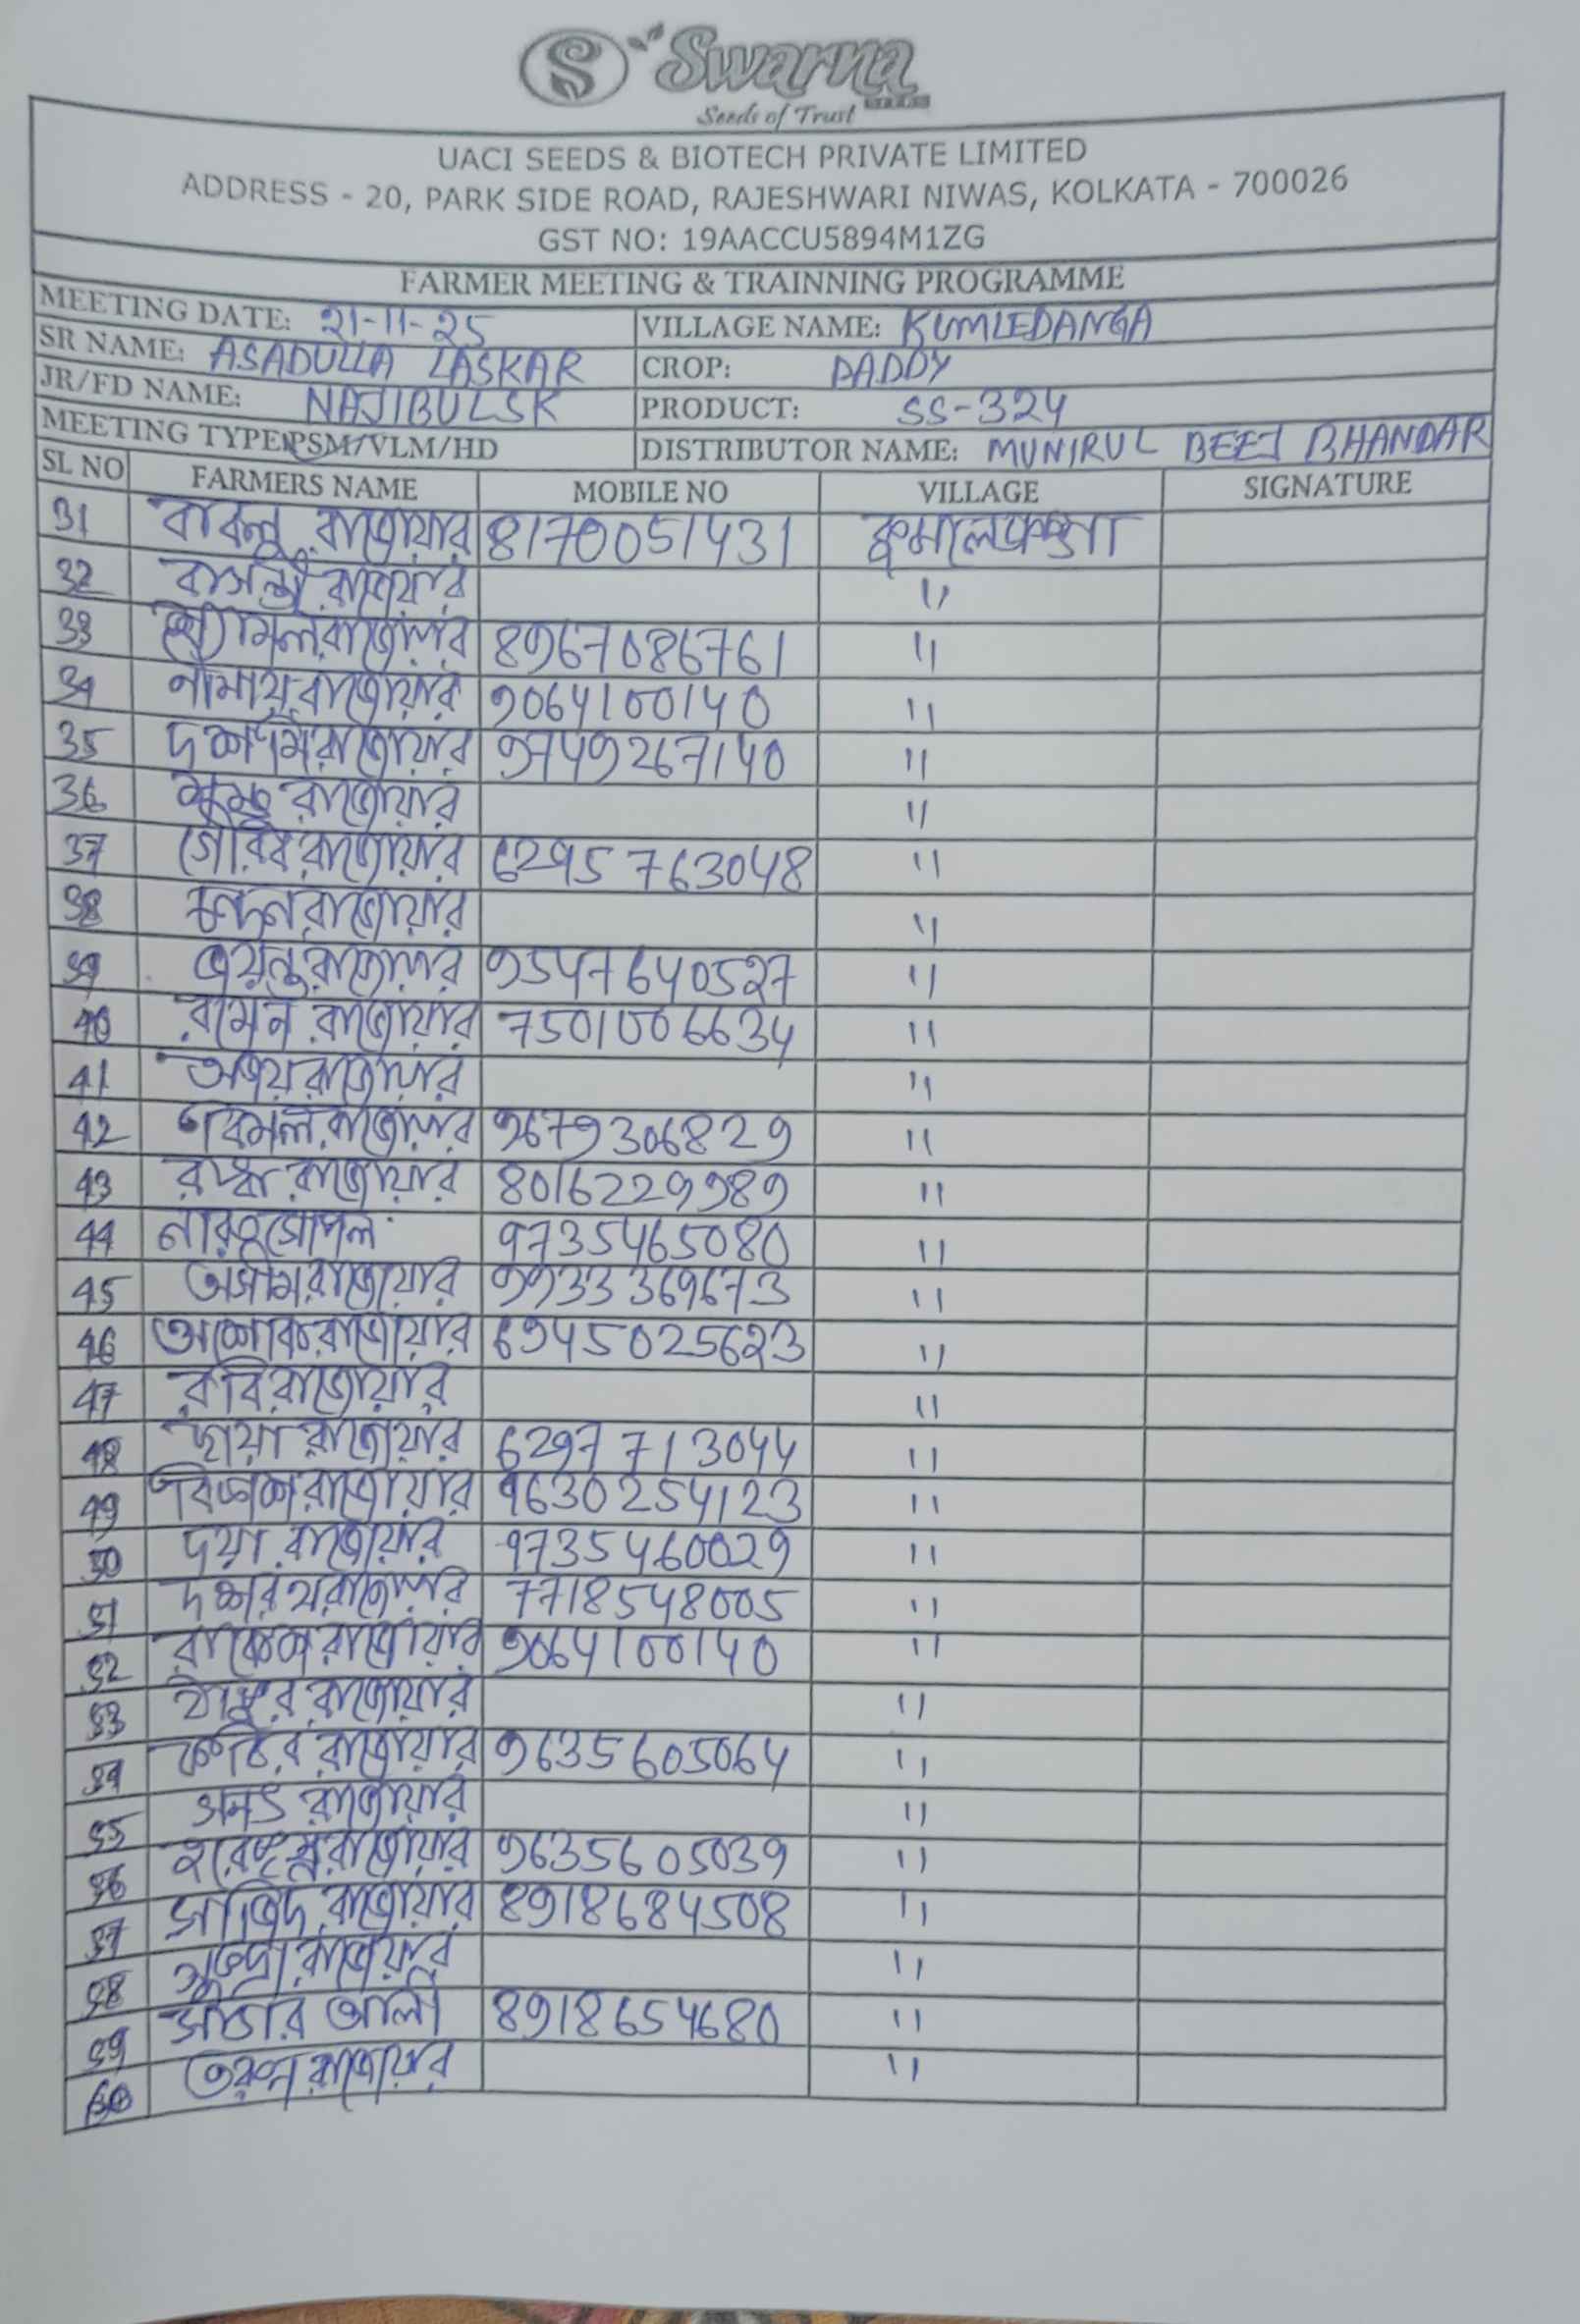 S Swarna
SEEDS
Seeds of Trust
UACI SEEDS & BIOTECH PRIVATE LIMITED
ADDRESS - 20, PARK SIDE ROAD, RAJESHWARI NIWAS, KOLKATA - 700026
GST NO: 19AACCU5894M1ZG
FARMER MEETING & TRAINNING PROGRAMME
MEETING DATE: 21-11-25 VILLAGE NAME: KUMLEDANGA
SR NAME: ASADULLA LASKAR CROP: PADDY
JR/FD NAME: NAJIBUL SK PRODUCT: SS-324
MEETING TYPE PSM/VLM/HD DISTRIBUTOR NAME: MUNIRUL BEEJ BHANDAR
SL NO FARMERS NAME MOBILE NO VILLAGE SIGNATURE
31 বাবলু রাজোয়ার 8170051431
32 বাসন্তী রাজোয়ার "
33 শ্যামল রাজোয়ার 8967086761 "
34 নীমায় রাজোয়ার 9064100140 "
35 দশমি রাজোয়ার 9749267140 "
36 রাজোয়ার "
37 রাজোয়ার 6295763048 "
38 রাজোয়ার "
39 জয়ন্ত রাজোয়ার 9547640527 "
40 রমেন রাজোয়ার 7501006634 "
41 অজয় রাজোয়ার "
42 বিমল রাজোয়ার 9679306829 "
43 রাজোয়ার 8016229989 "
44 9735465080 "
45 অসীম রাজোয়ার 9933369673 "
46 অশোক রাজোয়ার 6945025623 "
47 রবি রাজোয়ার "
48 ছায়া রাজোয়ার 6297713044 "
49 বিকাশ রাজোয়ার 9630254123 "
50 দয়া রাজোয়ার 9735460029 "
51 দশরথ রাজোয়ার 7718548005 "
52 রাকেশ রাজোয়ার 9064100140 "
53 ঠাকুর রাজোয়ার "
54 রাজোয়ার 9635605064 "
55 সনৎ রাজোয়ার "
56 হরেকৃষ্ণ রাজোয়ার 9635605039 "
57 রাজোয়ার 8918684508 "
58 রাজোয়ার "
59 আলী 8918654680 "
60 তরুন রাজোয়ার "